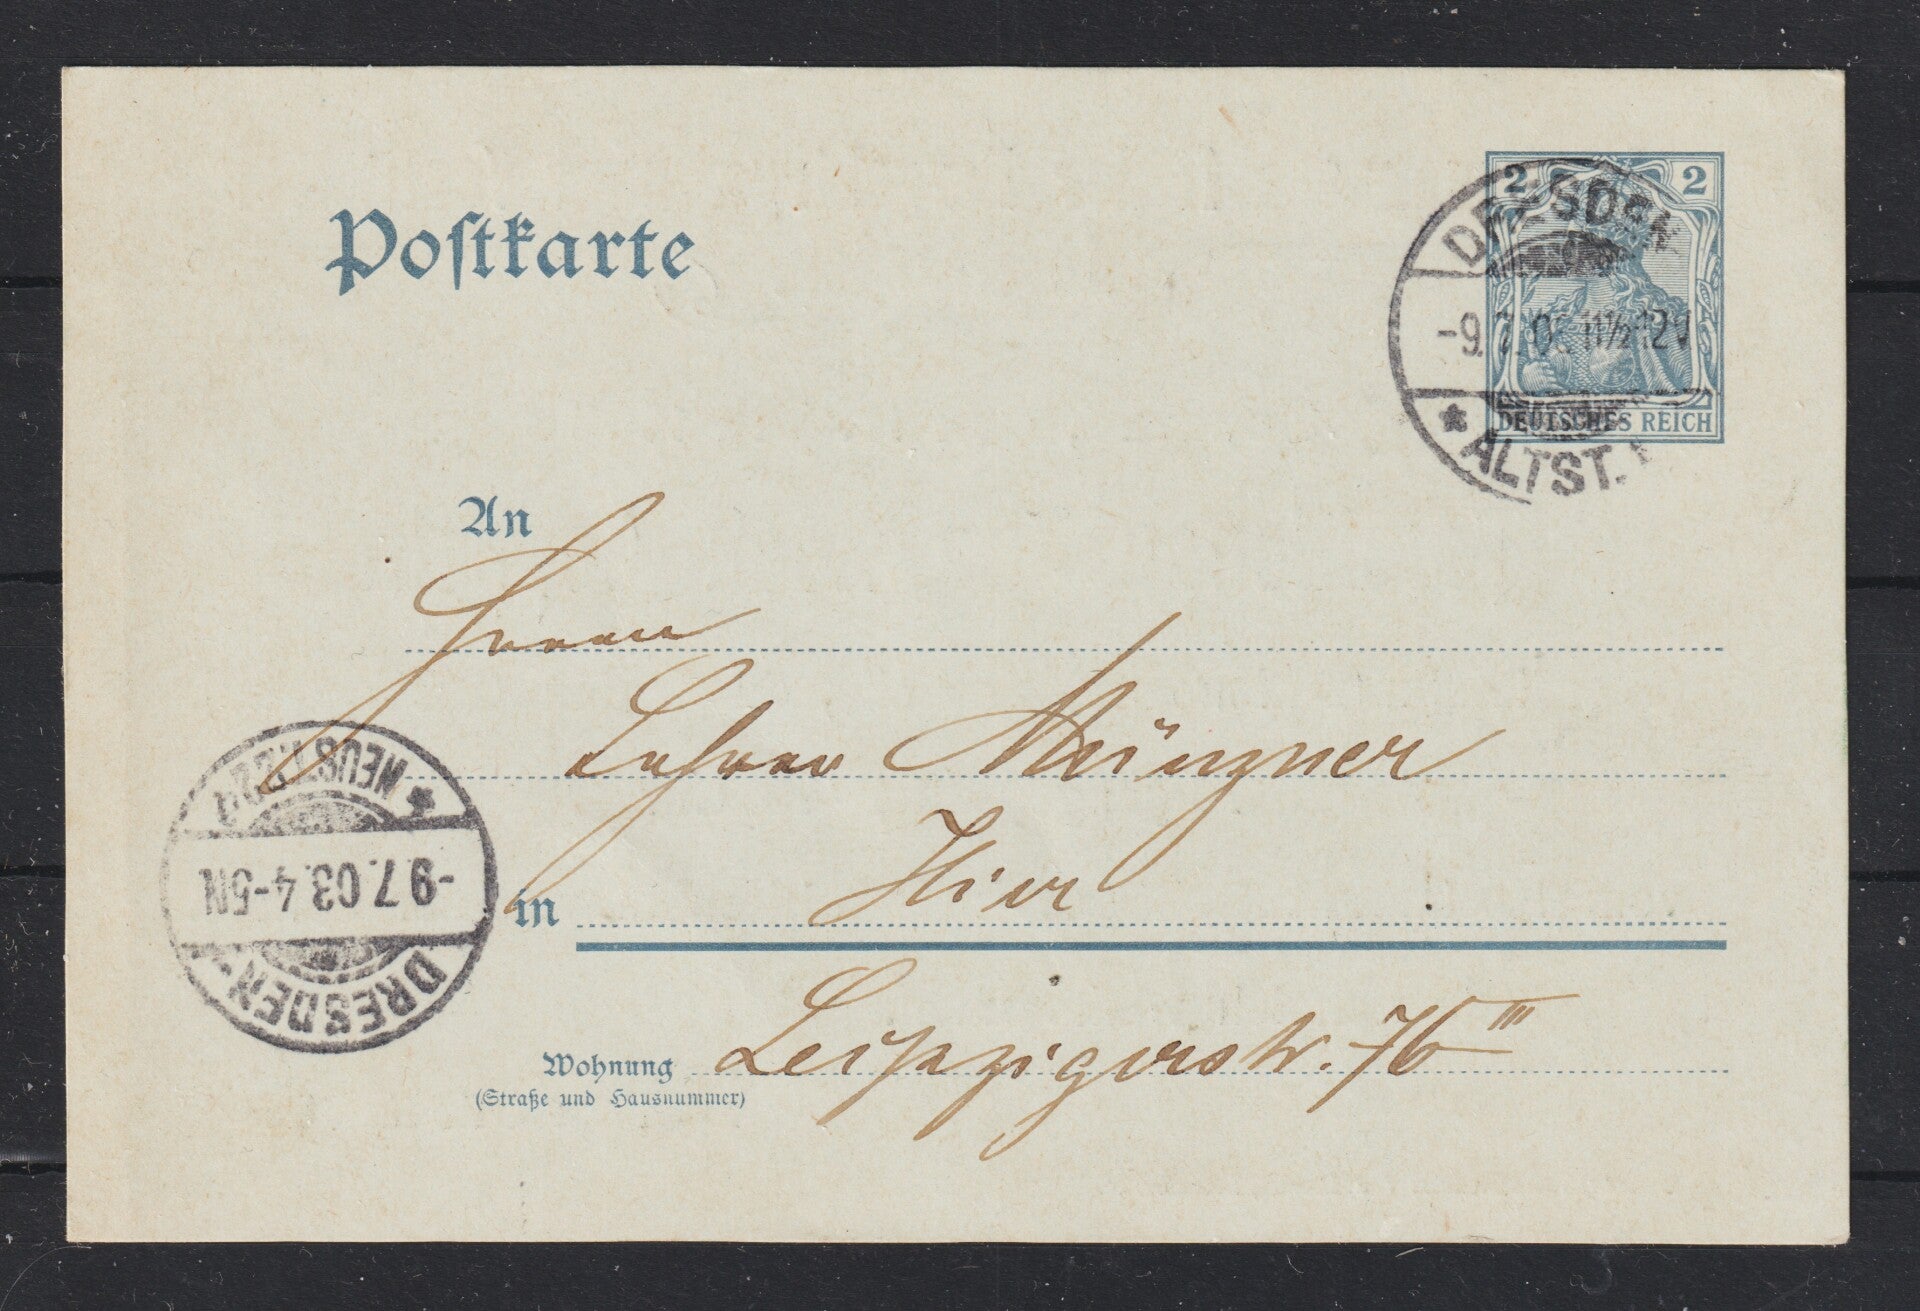 Postkarte
2 2
DRESDEN
-9.7.03 11½-12V
DEUTSCHES REICH
* ALTST.
An
Herrn
Lehrer Münzner
in Hier
Wohnung Leipzigerstr. 76 III
(Straße und Hausnummer)
DRESDEN-
-9.7.03.4-5N
* NEUST.